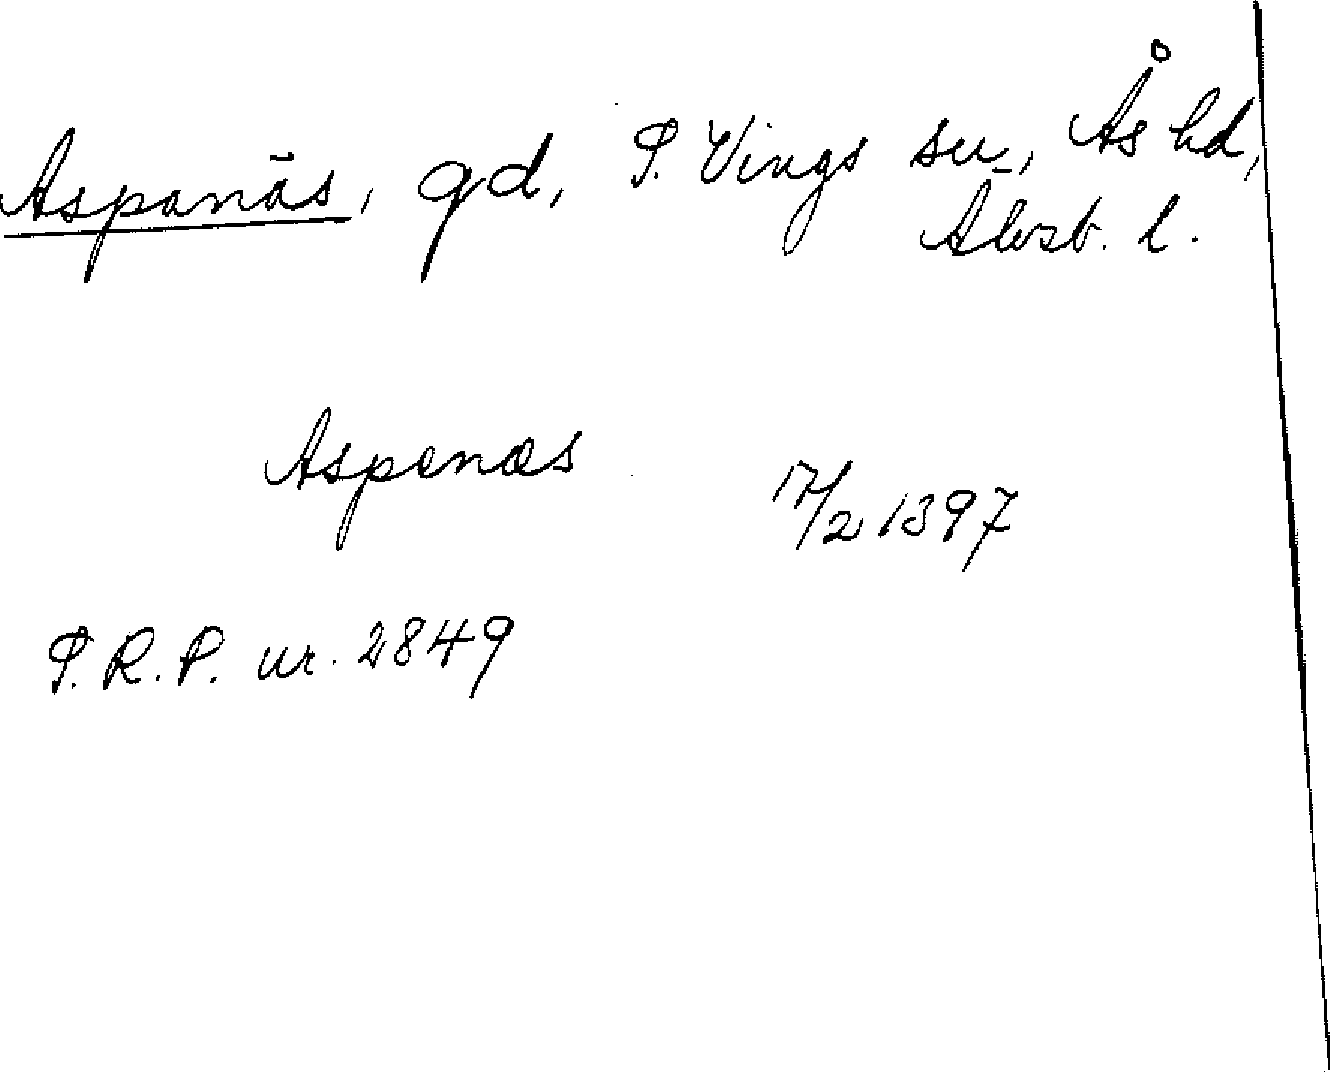 Aspanäs, gd, S. Vings sn, Ås hd,
Älvsb. l.
Aspenæs 17/2 1397
S.R.P. nr. 2849